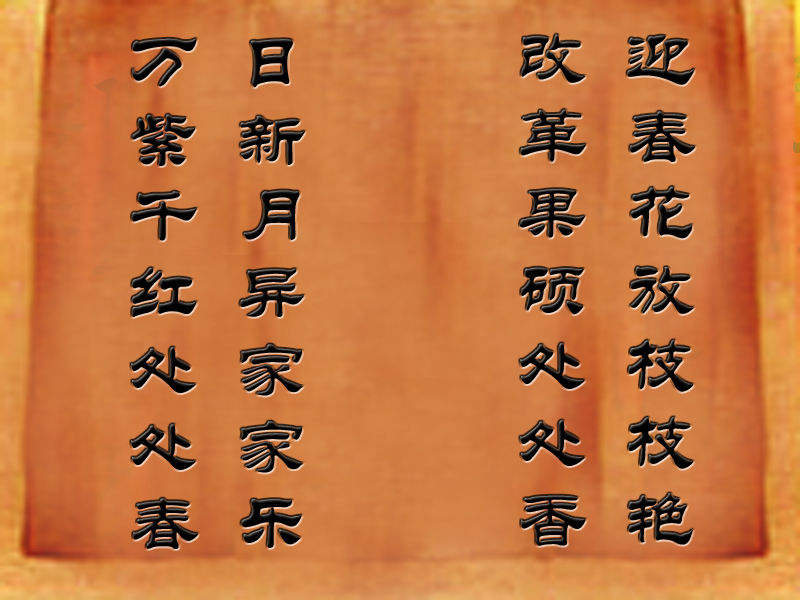 迎春花放枝枝艳
改革果硕处处香
日新月异家家乐
万紫千红处处春